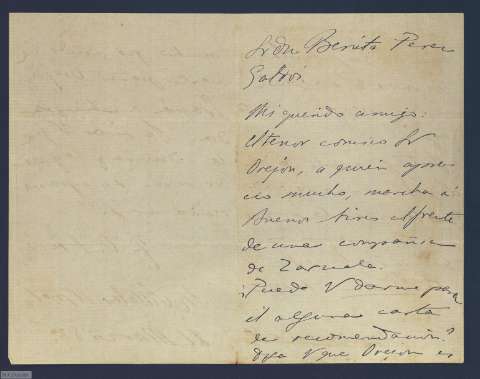 Sr Dn Benito Perez
Galdós.
Mi querido amigo:
El tenor cómico Sr
Orejón, a quien apre
cio mucho, marcha á
Buenos Aires al frente
de una compañia
de Zarzuela.
¿Puede V darme para
él alguna carta
de recomendación?
Diga V que Orejón es